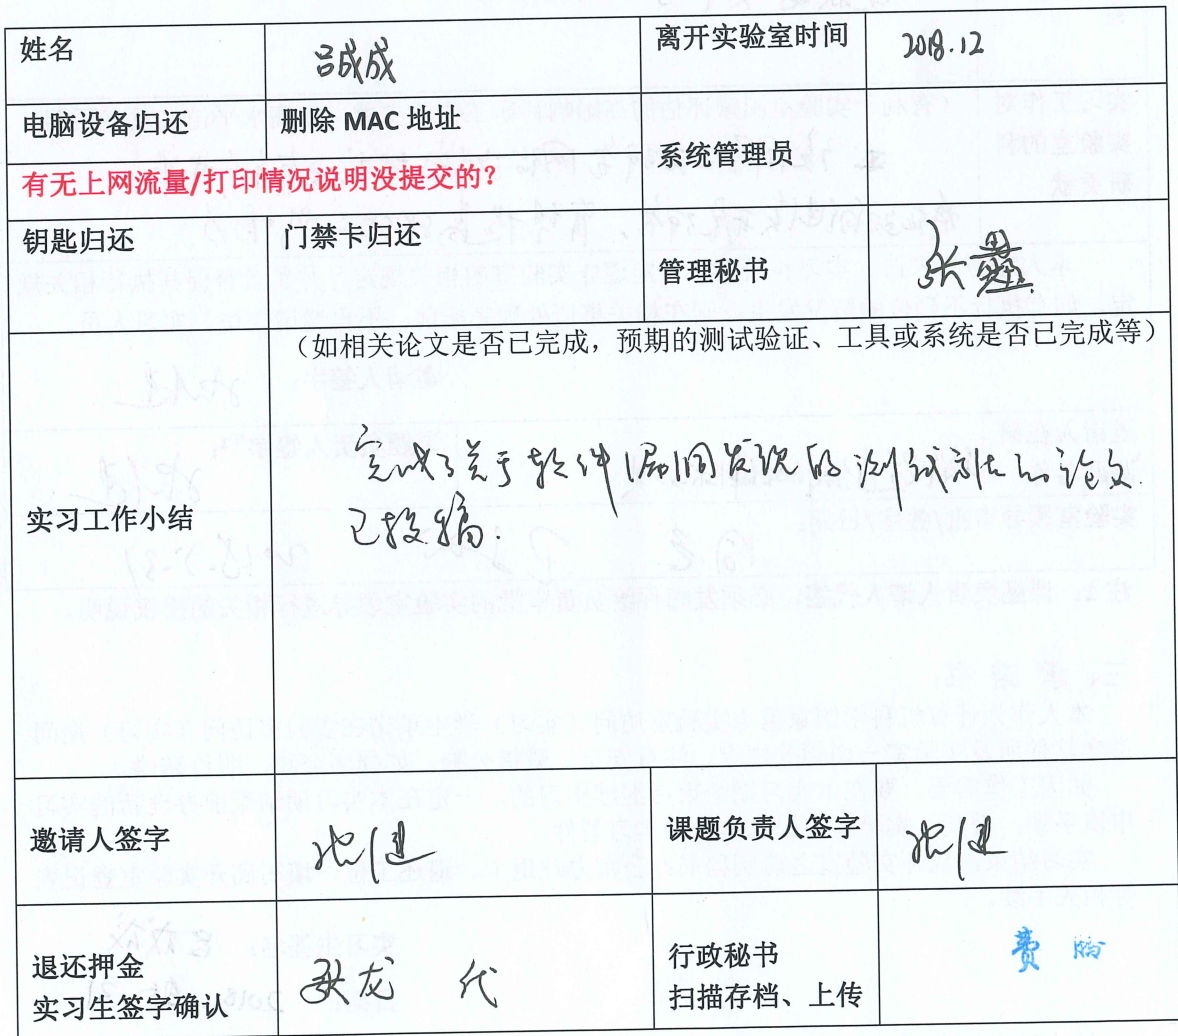 姓名 吕成成 离开实验室时间 2018.12
电脑设备归还 删除 MAC 地址 系统管理员
有无上网流量/打印情况说明没提交的?
钥匙归还 门禁卡归还 管理秘书 张
(如相关论文是否已完成,预期的测试验证、工具或系统是否已完成等)
实习工作小结
完成了关于软件漏洞发现的测试方法的论文.
已投稿.
邀请人签字 课题负责人签字
退还押金 行政秘书
实习生签字确认 龙 代 扫描存档、上传 费